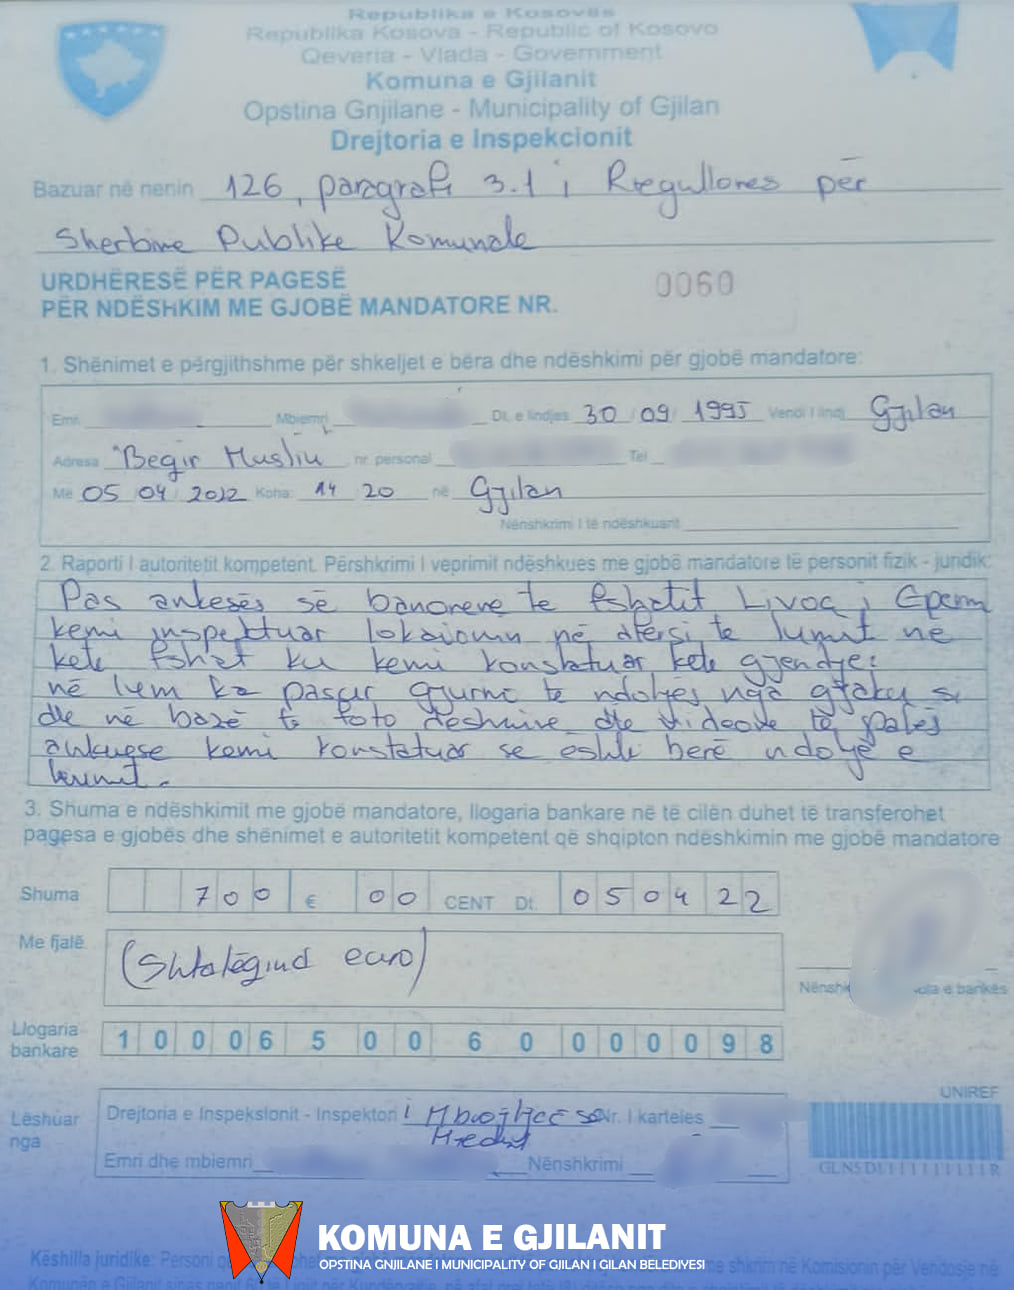 Republika e Kosovës
Republika Kosova - Republic of Kosovo
Qeveria - Vlada - Government
Komuna e Gjilanit
Opstina Gnjilane - Municipality of Gjilan
Drejtoria e Inspekcionit
Bazuar në nenin 126, paragrafi 3.1 i Rregullores për
Sherbime Publike Komunale
URDHËRESË PËR PAGESË
PËR NDËSHKIM ME GJOBË MANDATORE NR. 0060
1. Shënimet e përgjithshme për shkeljet e bëra dhe ndëshkimi për gjobë mandatore:
Emri Mbiemri Dt. e lindjes 30 09 1995 Vendi I lindj Gjilan
Adresa Beqir Musliu nr. personal Tel
Më 05 04 2022 Koha: 14 20 në Gjilan
Nënshkrimi I të ndëshkuarit
2. Raporti I autoritetit kompetent. Përshkrimi I veprimit ndëshkues me gjobë mandatore të personit fizik - juridik:
Pas ankesës së banoreve te fshatit Livoq i Eperm
kemi inspektuar lokacionin në afërsi te lumit në
kete fshat ku kemi konstatuar kete gjendje:
në lum ka pasur gjurme te ndotjes nga gjaku si
dhe në bazë te foto deshmive dhe videove të palës
ankuese kemi konstatuar se eshte berë ndotje e
lumit.
3. Shuma e ndëshkimit me gjobë mandatore, llogaria bankare në të cilën duhet të transferohet
pagesa e gjobës dhe shënimet e autoritetit kompetent që shqipton ndëshkimin me gjobë mandatore
Shuma 700 € 00 CENT Dt. 050422
Me fjalë (Shtatëqind euro)
Nënshk ola e bankës
Llogaria
bankare 1000650060000098
UNIREF
Lëshuar
nga
Drejtoria e Inspeksionit - Inspektori i Mbrojtjes së Nr. I kartelës
Mjedisit
Emri dhe mbiemri Nënshkrimi
KOMUNA E GJILANIT
OPSTINA GNJILANE I MUNICIPALITY OF GJILAN I GILAN BELEDIYESI
Këshilla juridike: Personi
me shkrim në Komisionin për Vendosje në
Komunën e Gjilanit sipas nenit